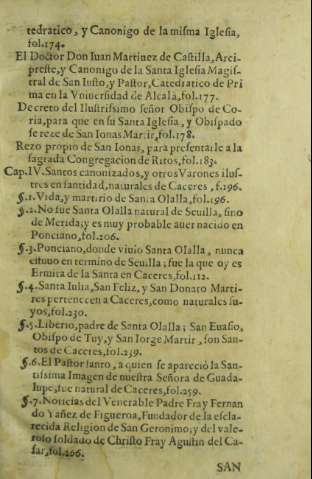 tedratico, y Canonigo de la misma Iglesia,
fol.174.
El Doctor Don Iuan Martinez de Castilla, Arci-
preste, y Canonigo de la Santa Iglesia Magis-
tral de San Iusto, y Pastor, Catedratico de Pri
ma en la Vniuersidad de Alcalà, fol.177.
Decreto del Ilustrissimo señor Obispo de Co-
ria, para que en su Santa Iglesia, y Obispado
se reze de San Ionas Martir, fol.178.
Rezo propio de San Ionas, para presentarle a la
sagrada Congregacion de Ritos, fol.183.
Cap.IV. Santos canonizados, y otros Varones ilus-
tres en santidad, naturales de Caceres, f.196.
§.1. Vida, y martirio de Santa Olalla, fol.196.
§.2. No fue Santa Olalla natural de Seuilla, sino
de Merida; y es muy probable auer nacido en
Ponciano, fol.206.
§.3. Ponciano, donde viuio Santa Olalla, nunca
estuuo en termino de Seuilla; fue la que oy es
Ermita de la Santa en Caceres, fol.112.
§.4. Santa Iulia, San Feliz, y San Donato Marti-
res pertenecen a Caceres, como naturales su-
yos, fol.230.
§.5. Liberio, padre de Santa Olalla; San Euasio,
Obispo de Tuy, y San Iorge Martir, son San-
tos de Caceres, fol.239.
§.6. El Pastor santo, a quien se apareciò la San-
tissima Imagen de nuestra Señora de Guada-
lupe, fue natural de Caceres, fol.259.
§.7. Noticias del Venerable Padre Fray Fernan
do Yañez de Figueroa, Fundador de la escla-
recida Religion de San Geronimo; y del vale-
roso soldado de Christo Fray Agustin del Ca-
sar, fol.266.
SAN